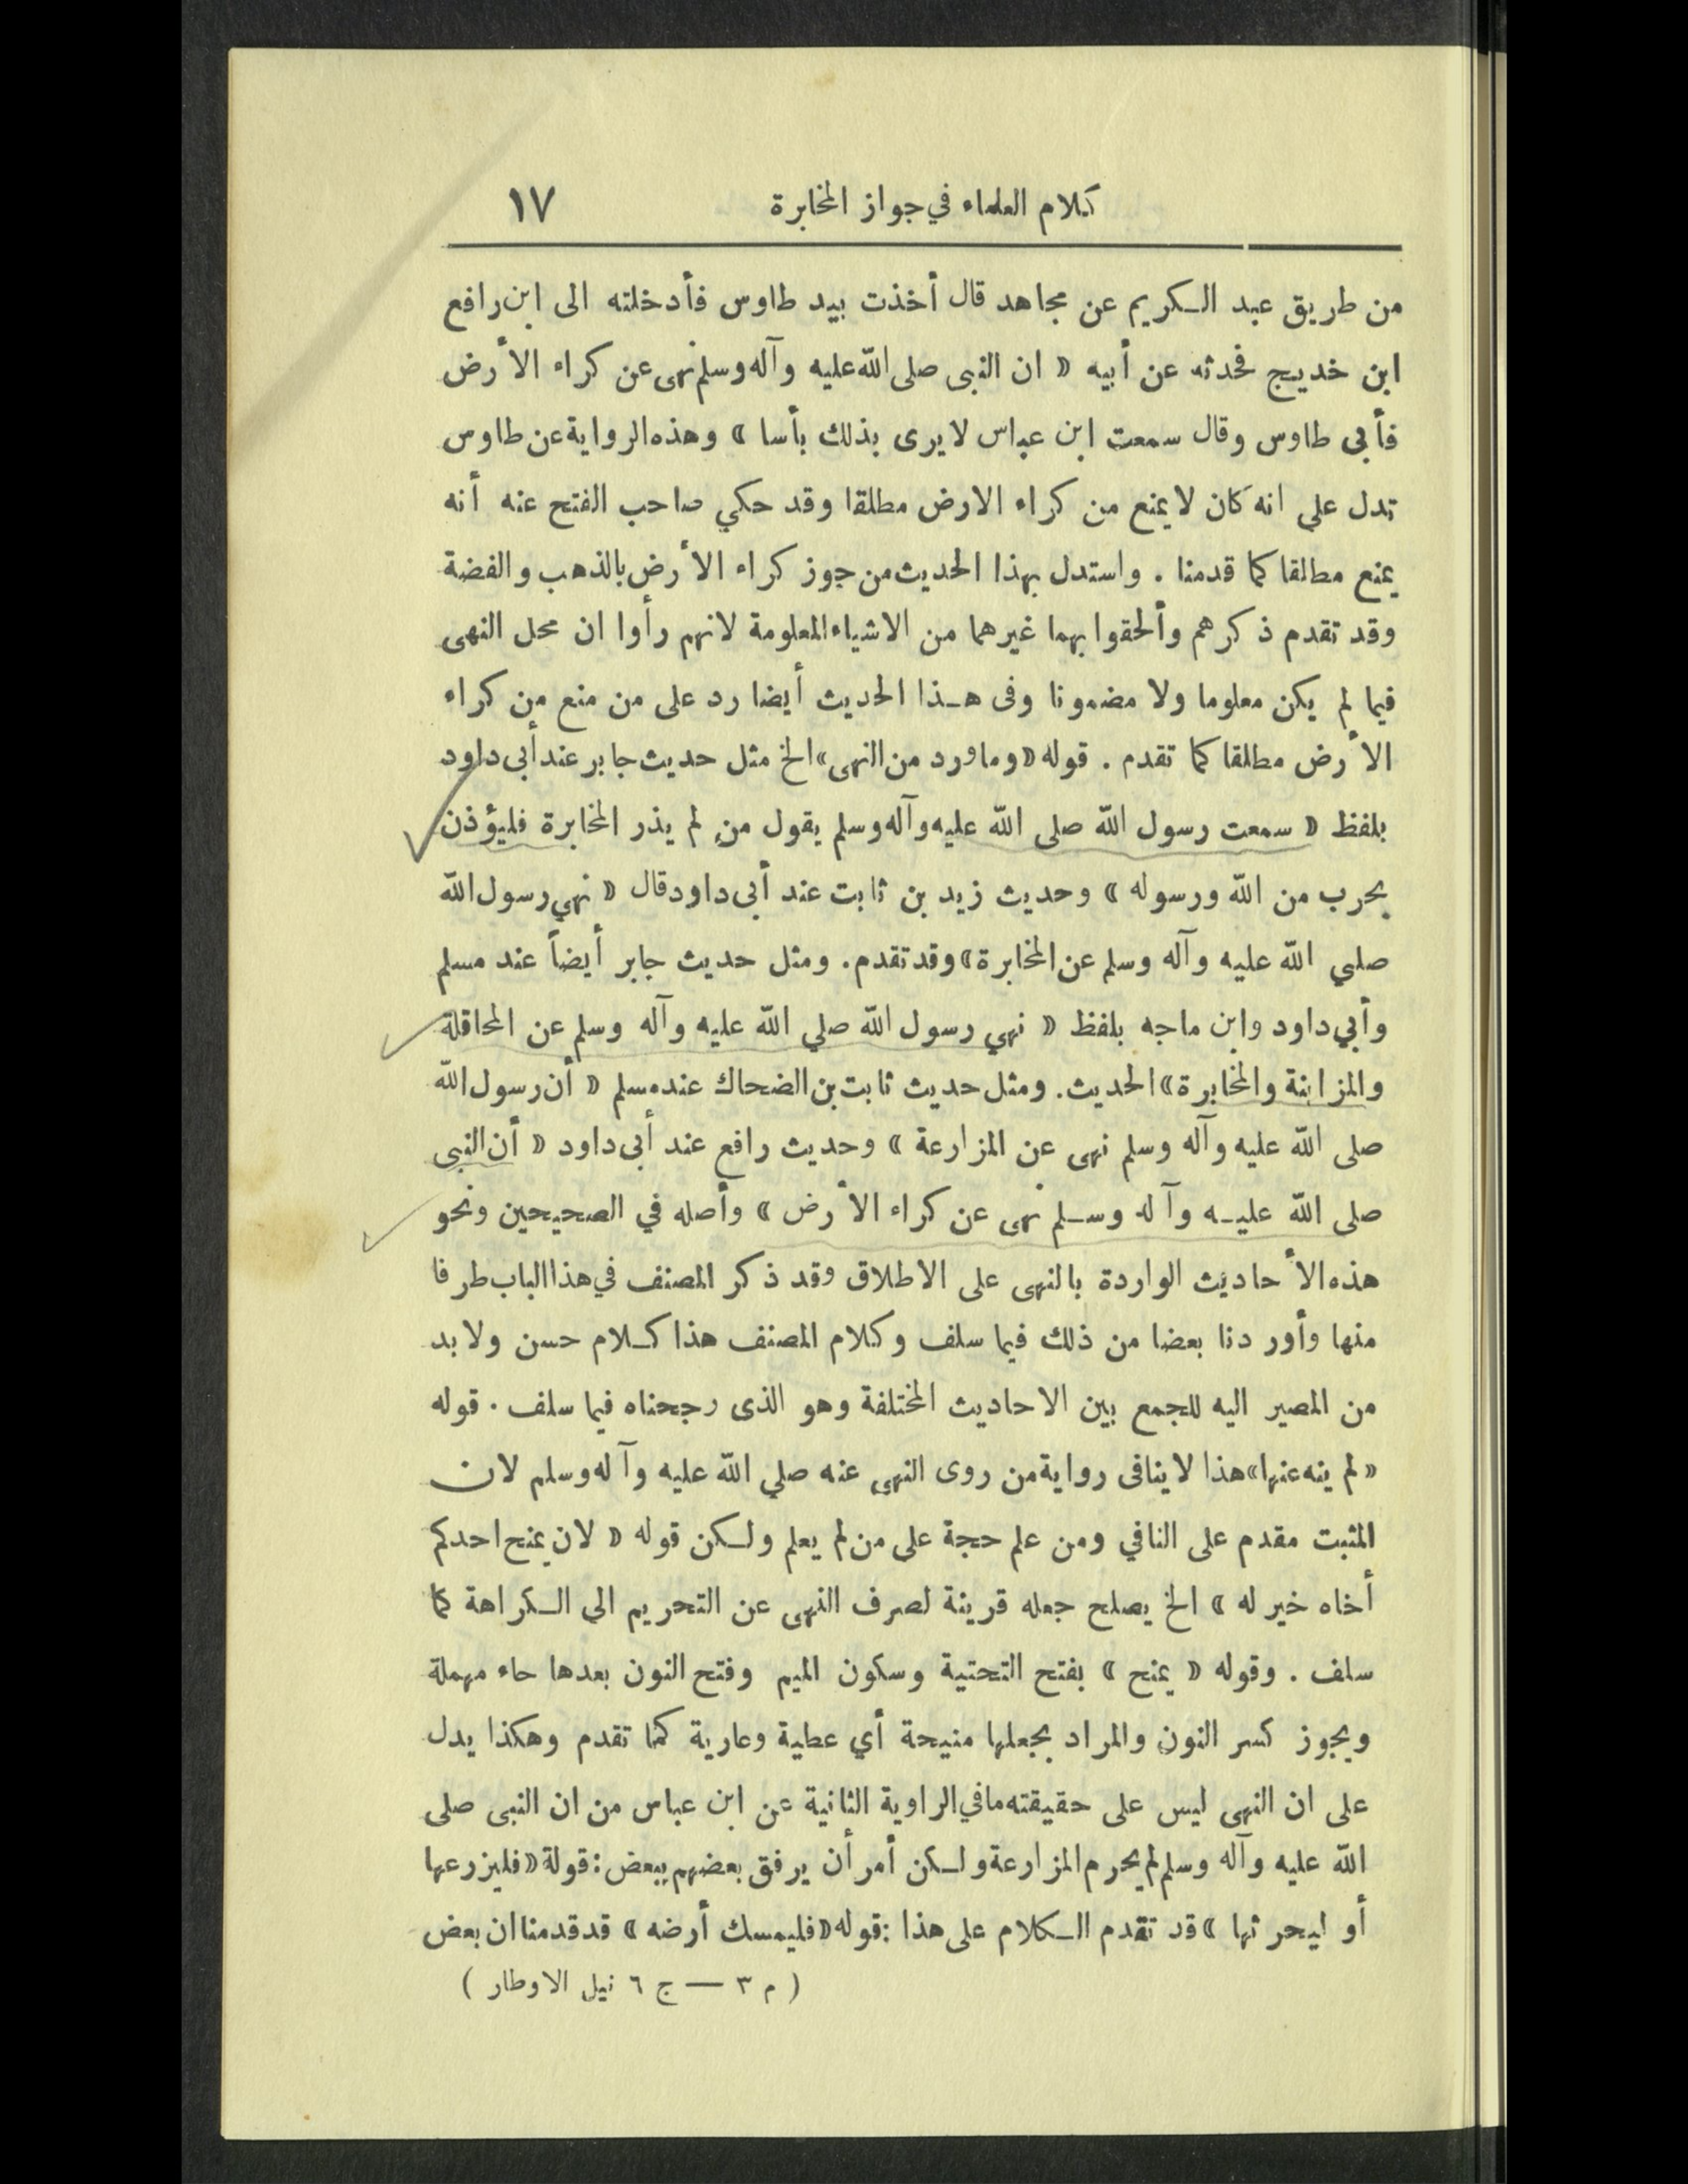 كلام العلماء في جواز المخابرة ١٧
من طريق عبد الكريم عن مجاهد قال أخذت بيد طاوس فأدخلته الى ابن رافع
ابن خديج فحدثه عن أبيه « ان النبى صلى الله عليه وآله وسلم نهى عن كراء الأرض
فأبى طاوس وقال سمعت ابن عباس لا يرى بذلك بأسا » وهذه الرواية عن طاوس
تدل علي انه كان لا يمنع من كراء الارض مطلقا وقد حكي صاحب الفتح عنه أنه
يمنع مطالقا كما قدمنا . واستدل بهذا الحديث من جوز كراء الأرض بالذهب والفضة
وقد تقدم ذكرهم وألحقوا بهما غيرهما من الاشياء المعلومة لانهم رأوا ان محل النهى
فيما لم يكن معلوما ولا مضمونا وفى هذا الحديث أيضا رد على من منع من كراء
الأرض مطلقا كما تقدم . قوله « وما ورد من النهى » الخ مثل حديث جابر عند أبى داود
بلفظ « سمعت رسول الله صلى الله عليه وآله وسلم يقول من لم يذر المخابرة فليؤذن
بحرب من الله ورسوله » وحديث زيد بن ثابت عند أبى داود قال « نهي رسول الله
صلي الله عليه وآله وسلم عن المخابرة » وقد تقدم . ومثل حديث جابر أيضاً عند مسلم
وأبي داود وابن ماجه بلفظ « نهي رسول الله صلي الله عليه وآله وسلم عن المحاقلة
والمزابنة والمخابرة » الحديث . ومثل حديث ثابت بن الضحاك عند مسلم « أن رسول الله
صلى الله عليه وآله وسلم نهى عن المزارعة » وحديث رافع عند أبى داود « أن النبى
صلى الله عليه وآله وسلم نهى عن كراء الأرض » وأصله في الصحيحين ونحو
هذه الأحاديث الواردة بالنهى على الاطلاق وقد ذكر المصنف في هذا الباب طرفا
منها وأوردنا بعضا من ذلك فيما سلف وكلام المصنف هذا كلام حسن ولا بد
من المصير اليه للجمع بين الاحاديث المختلفة وهو الذى رجحناه فيما سلف . قوله
« لم ينه عنها » هذا لا ينافى رواية من روى النهى عنه صلي الله عليه وآله وسلم لان
المثبت مقدم على النافي ومن علم حجة على من لم يعلم ولكن قوله « لان يمنح احدكم
أخاه خير له » الخ يصلح جعله قرينة لصرف النهى عن التحريم الي الكراهة كما
سلف . وقوله « يمنح » بفتح التحتية وسكون الميم وفتح النون بعدها حاء مهملة
ويجوز كسر النون والمراد بجعلها منيحة أي عطية وعارية كما تقدم وهكذا يدل
على ان النهى ليس على حقيقته ما في الراوية الثانية عن ابن عباس من ان النبى صلى
الله عليه وآله وسلم لم يحرم المزارعة ولكن أمر أن يرفق بعضهم ببعض : قولة « فليزرعها
أو ليحرثها » قد تقدم الكلام على هذا : قوله « فليمسك أرضه » قد قدمنا ان بعض
( م ٣ — ج ٦ نيل الاوطار )